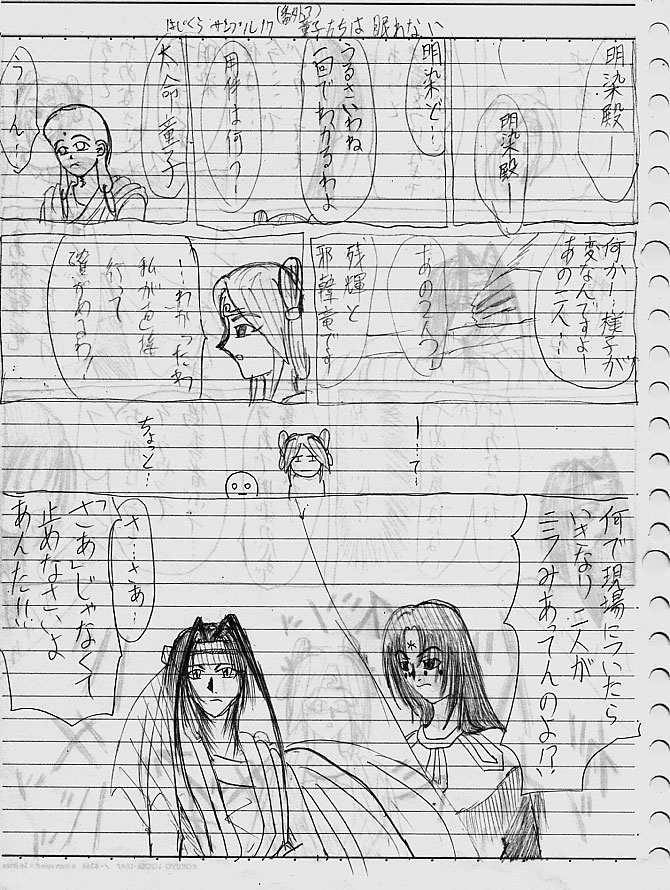 はじくら サンプル17 (番外?) 童子たちは 眠れない
明染殿ー
明染殿ー
明染ど…
うるさいわね
一回でわかるわよ
用件は何?
大命童子
うーん…
何か…様子が
変なんですよー
あの二人…
あの2人?
残輝と
邪韓竜です
…わかったわ
私が直接
行って
確かめるわ!
ー…て…
ちょっと…
何で現場についたら
いきなり二人が
ニラみあってんのよ!?
さ…さあ…
「さあ」じゃなくて
止めなさいよ
あんた!!